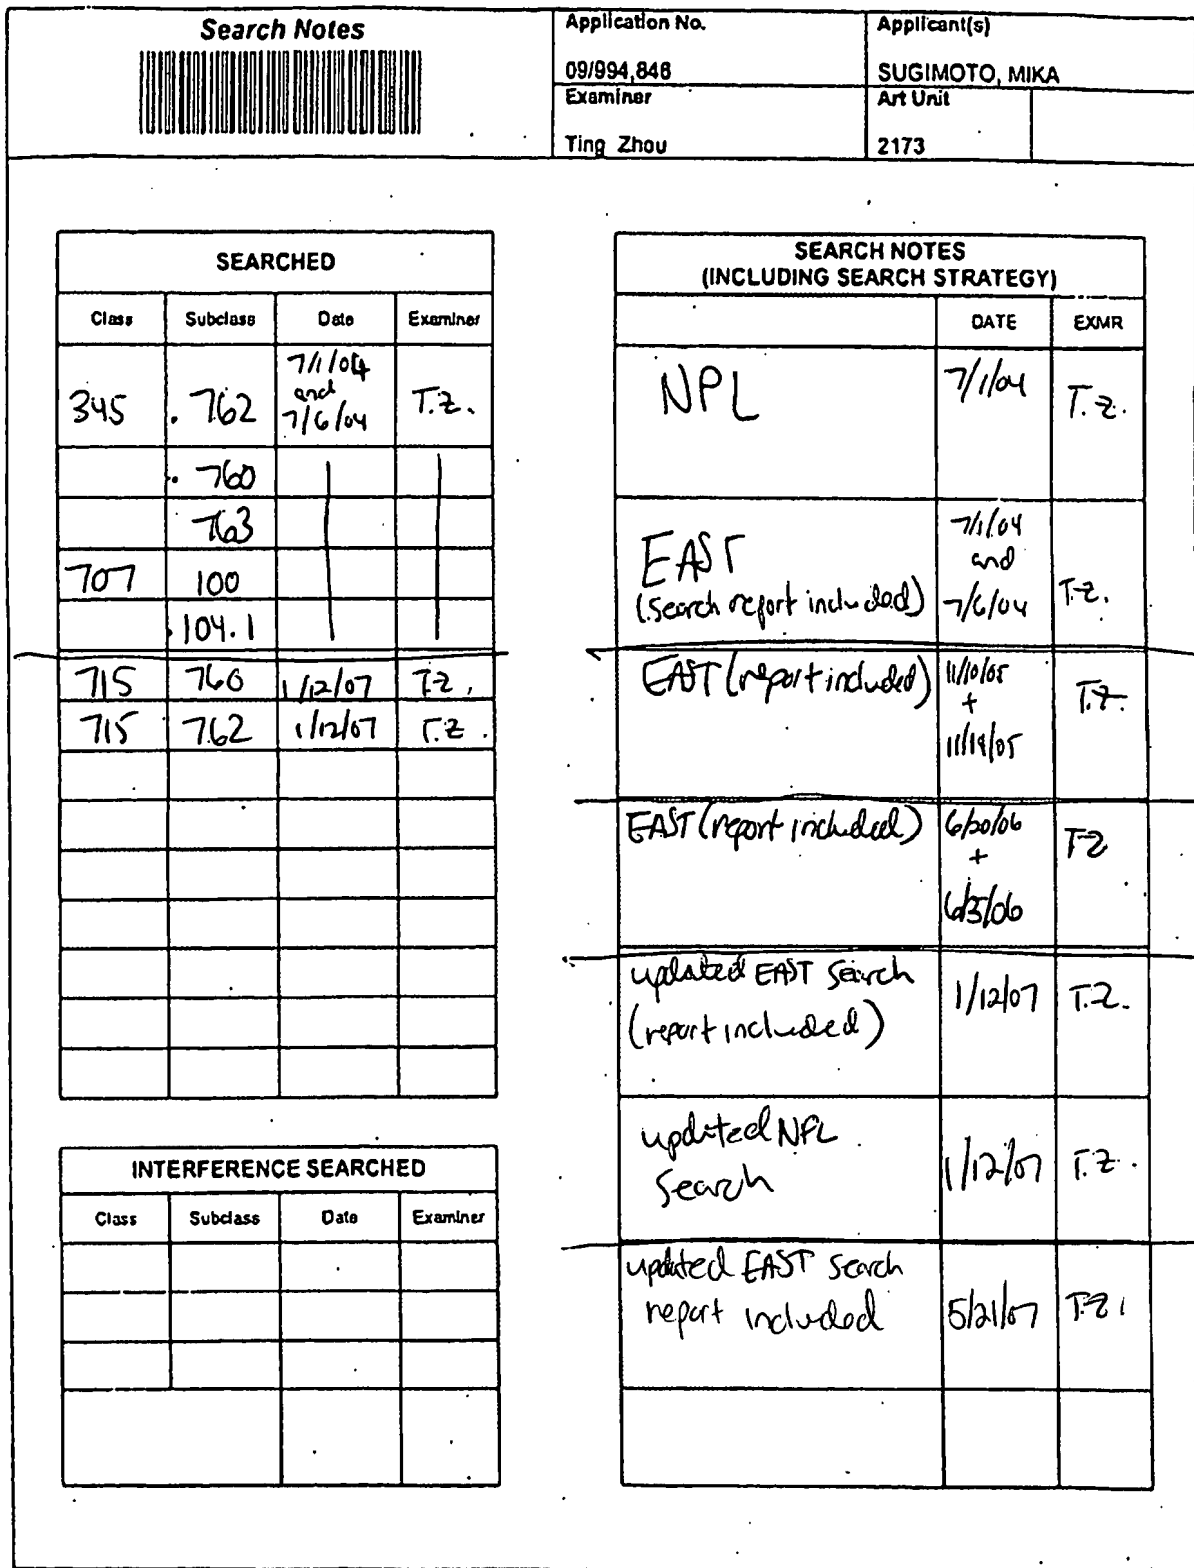 Search Notes
Application No.
Applicant(s)
09/994,846
SUGIMOTO, MIKA
Examiner
Art Unit
Ting Zhou
2173
SEARCHED
Class Subclass Date Examiner
345 762 7/1/04 and 7/6/04 T.Z.
760
763
707 100
104.1
715 760 1/12/07 T.Z.
715 762 1/12/07 T.Z.
INTERFERENCE SEARCHED
Class Subclass Date Examiner
SEARCH NOTES
(INCLUDING SEARCH STRATEGY)
DATE EXMR
NPL 7/1/04 T.Z.
EAST 7/1/04
and
(search report included) 7/6/04 T.Z.
EAST (report included) 11/10/05 T.Z.
+
EAST (report included) 6/20/06 T.Z
+
updated EAST search 1/12/07 T.Z.
(report included)
updated NPL
search 1/12/07 T.Z.
updated EAST search
report included 5/21/07 T.Z.